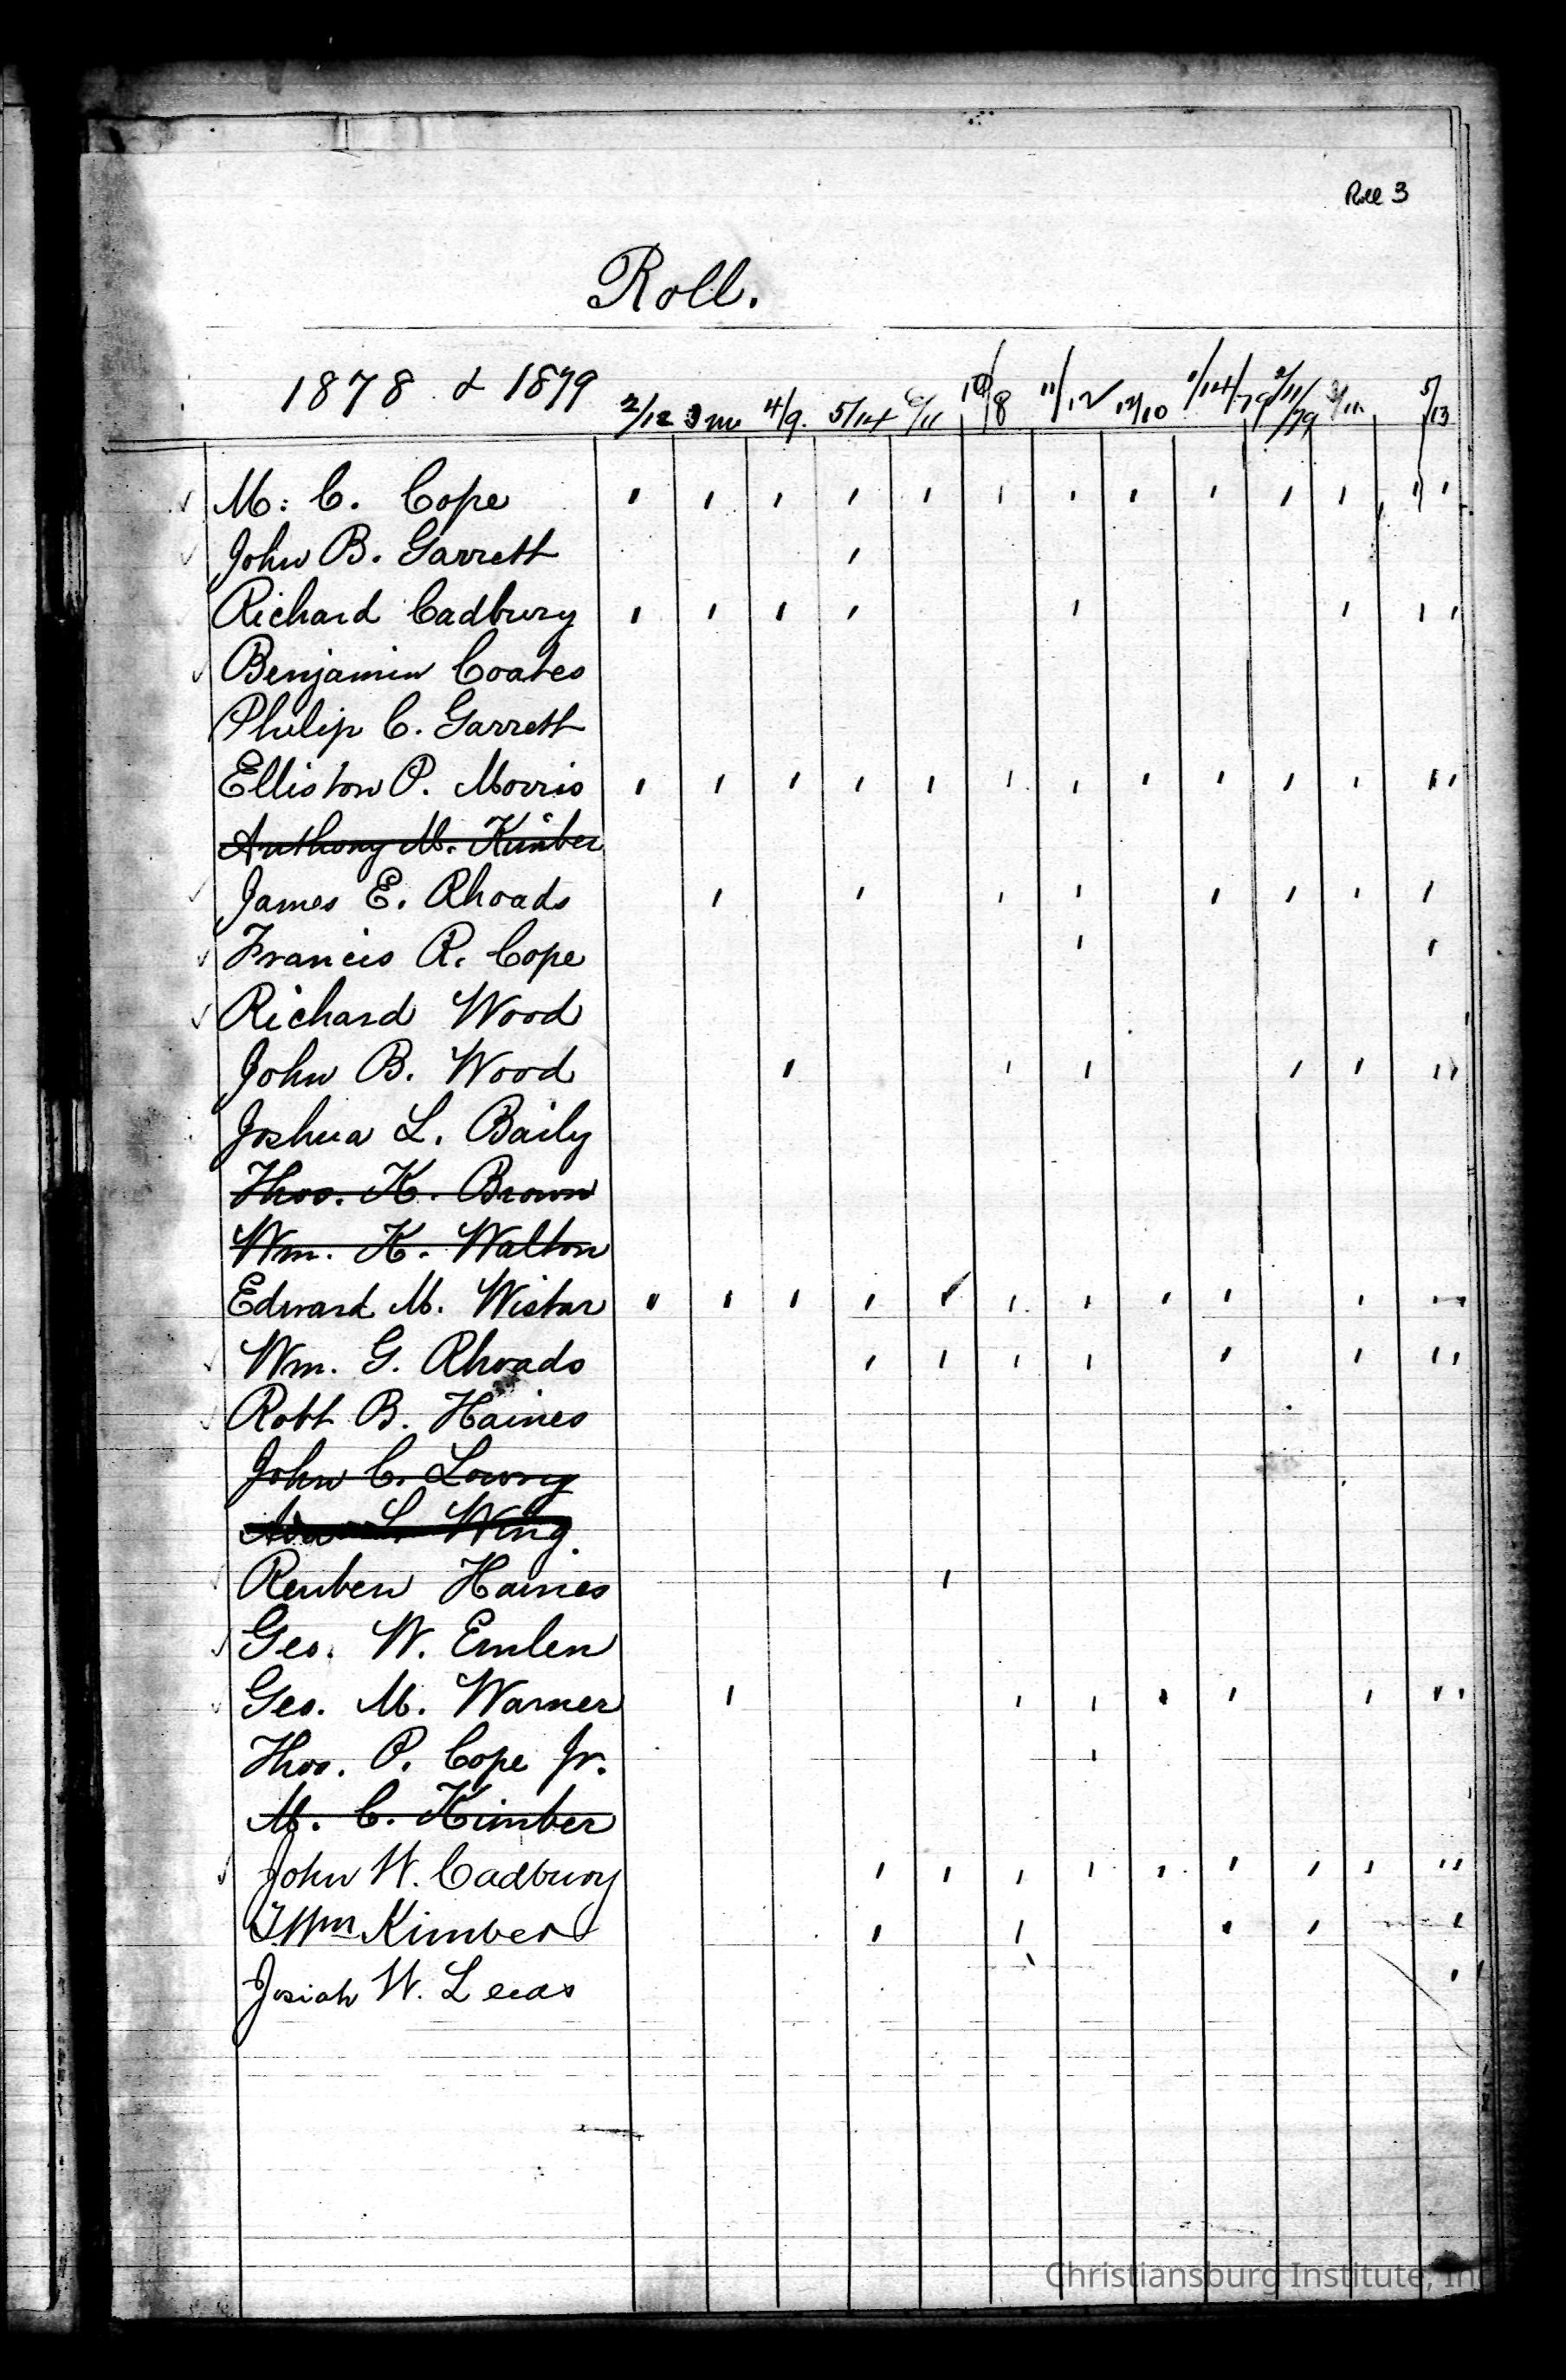 Roll 3
Roll.
1878 & 1879 2/12 3 mo 4/9. 5/14 6/11 10/8 11/12 12/10 1/14/79 2/11/79 3/11 5/13
M. C. Cope
John B. Garrett
Richard Cadbury
Benjamin Coates
Philip C. Garrett
Elliston P. Morris
Anthony M. Kimber
James E. Rhoads
Francis R. Cope
Richard Wood
John B. Wood
Joshua L. Baily
Thos. K. Brown
Wm. K. Walton
Edward M. Wistar
Wm. G. Rhoads
Robt B. Haines
John C. Lowry
L. Wing.
Reuben Haines
Geo. W. Emlen
Geo. M. Warner
Thos. P. Cope Jr.
M. C. Kimber
John W. Cadbury
T. Wm Kimber
Josiah W. Leeds
Christiansburg Institute, Inc